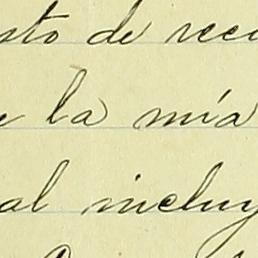 sto de reci
e la mía
al incluy